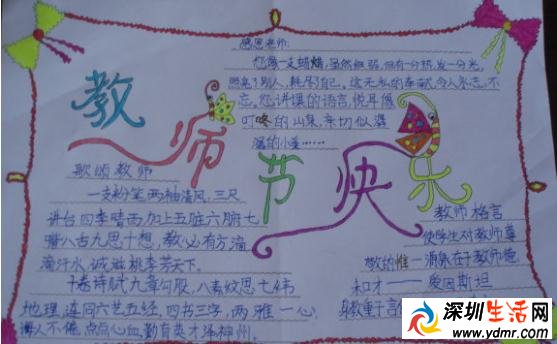 感恩老师:
您像一支蜡烛,虽然细弱,但有一分热,发一分光,
照亮了别人,耗尽了自己。这无私的奉献,令人永志不
忘。您讲课的语言,悦耳像
叮咚的山泉,亲切似潺
潺的小溪……
教师节快乐
歌颂教师
一支粉笔两袖清风,三尺
讲台四季晴雨加上五脏六腑七
嘴八舌九思十想,教必有方滴
滴汗水,诚滋桃李芳天下。
十卷诗赋九章勾股,八索文思七纬
地理,连同六艺五经,四书三字,两雅一心,
诲人不倦,点点心血,勤育英才泽神州。
教师格言
使学生对教师尊
敬的惟一源泉在于教师德
和才——爱因斯坦
身教重于言
深圳生活网
www.ydmr.com